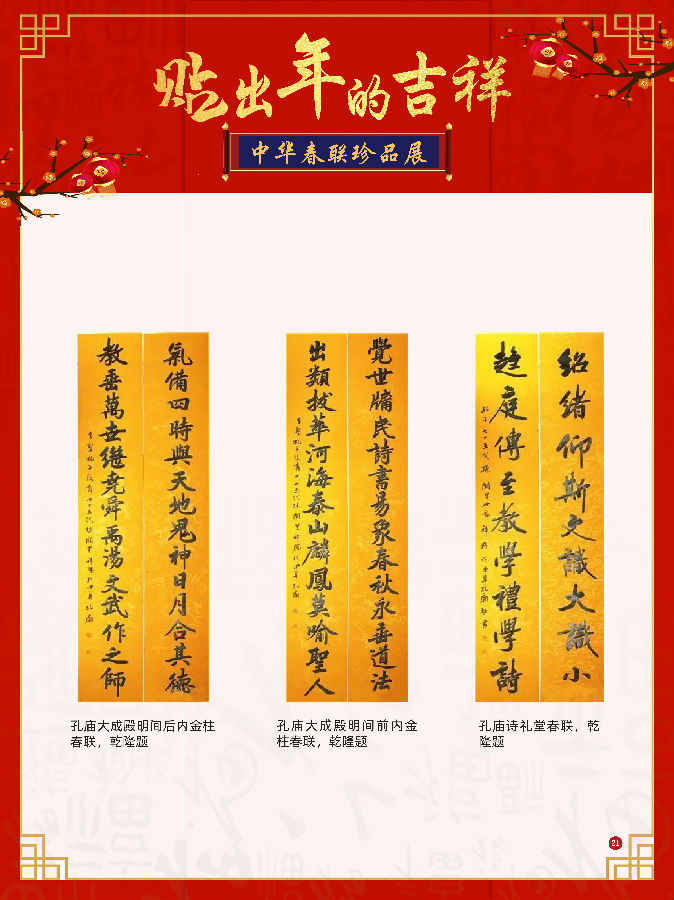 贴出年的吉祥
中华春联珍品展
氣備四時與天地鬼神日月合其德
教垂萬世繼堯舜禹湯文武作之師
覺世牖民詩書易象春秋永垂道法
出類拔萃河海泰山麟鳳莫喻聖人
紹緒仰斯文識大識小
趨庭傳至教學禮學詩
孔庙大成殿明间后内金柱
春联，乾隆题
孔庙大成殿明间前内金
柱春联，乾隆题
孔庙诗礼堂春联，乾
隆题
21